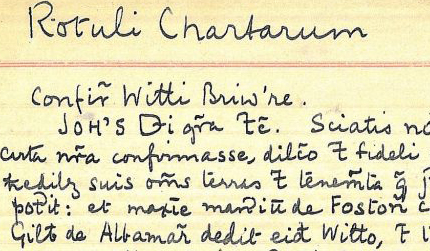 Rotuli Chartarum
Confir̃ Witti Briw're.
JOH'S Di gr̃a ⁊c̃. Sciatis nõ
carta nr̃a confirmasse, dilc̃o ⁊ fideli
suis om̃s terras ⁊ tenem̃ta q̃
pot̃it: et maxĩe man̾iũ de Foston
Gilt de Albamar̃ dedit eid̃ Witto, ⁊